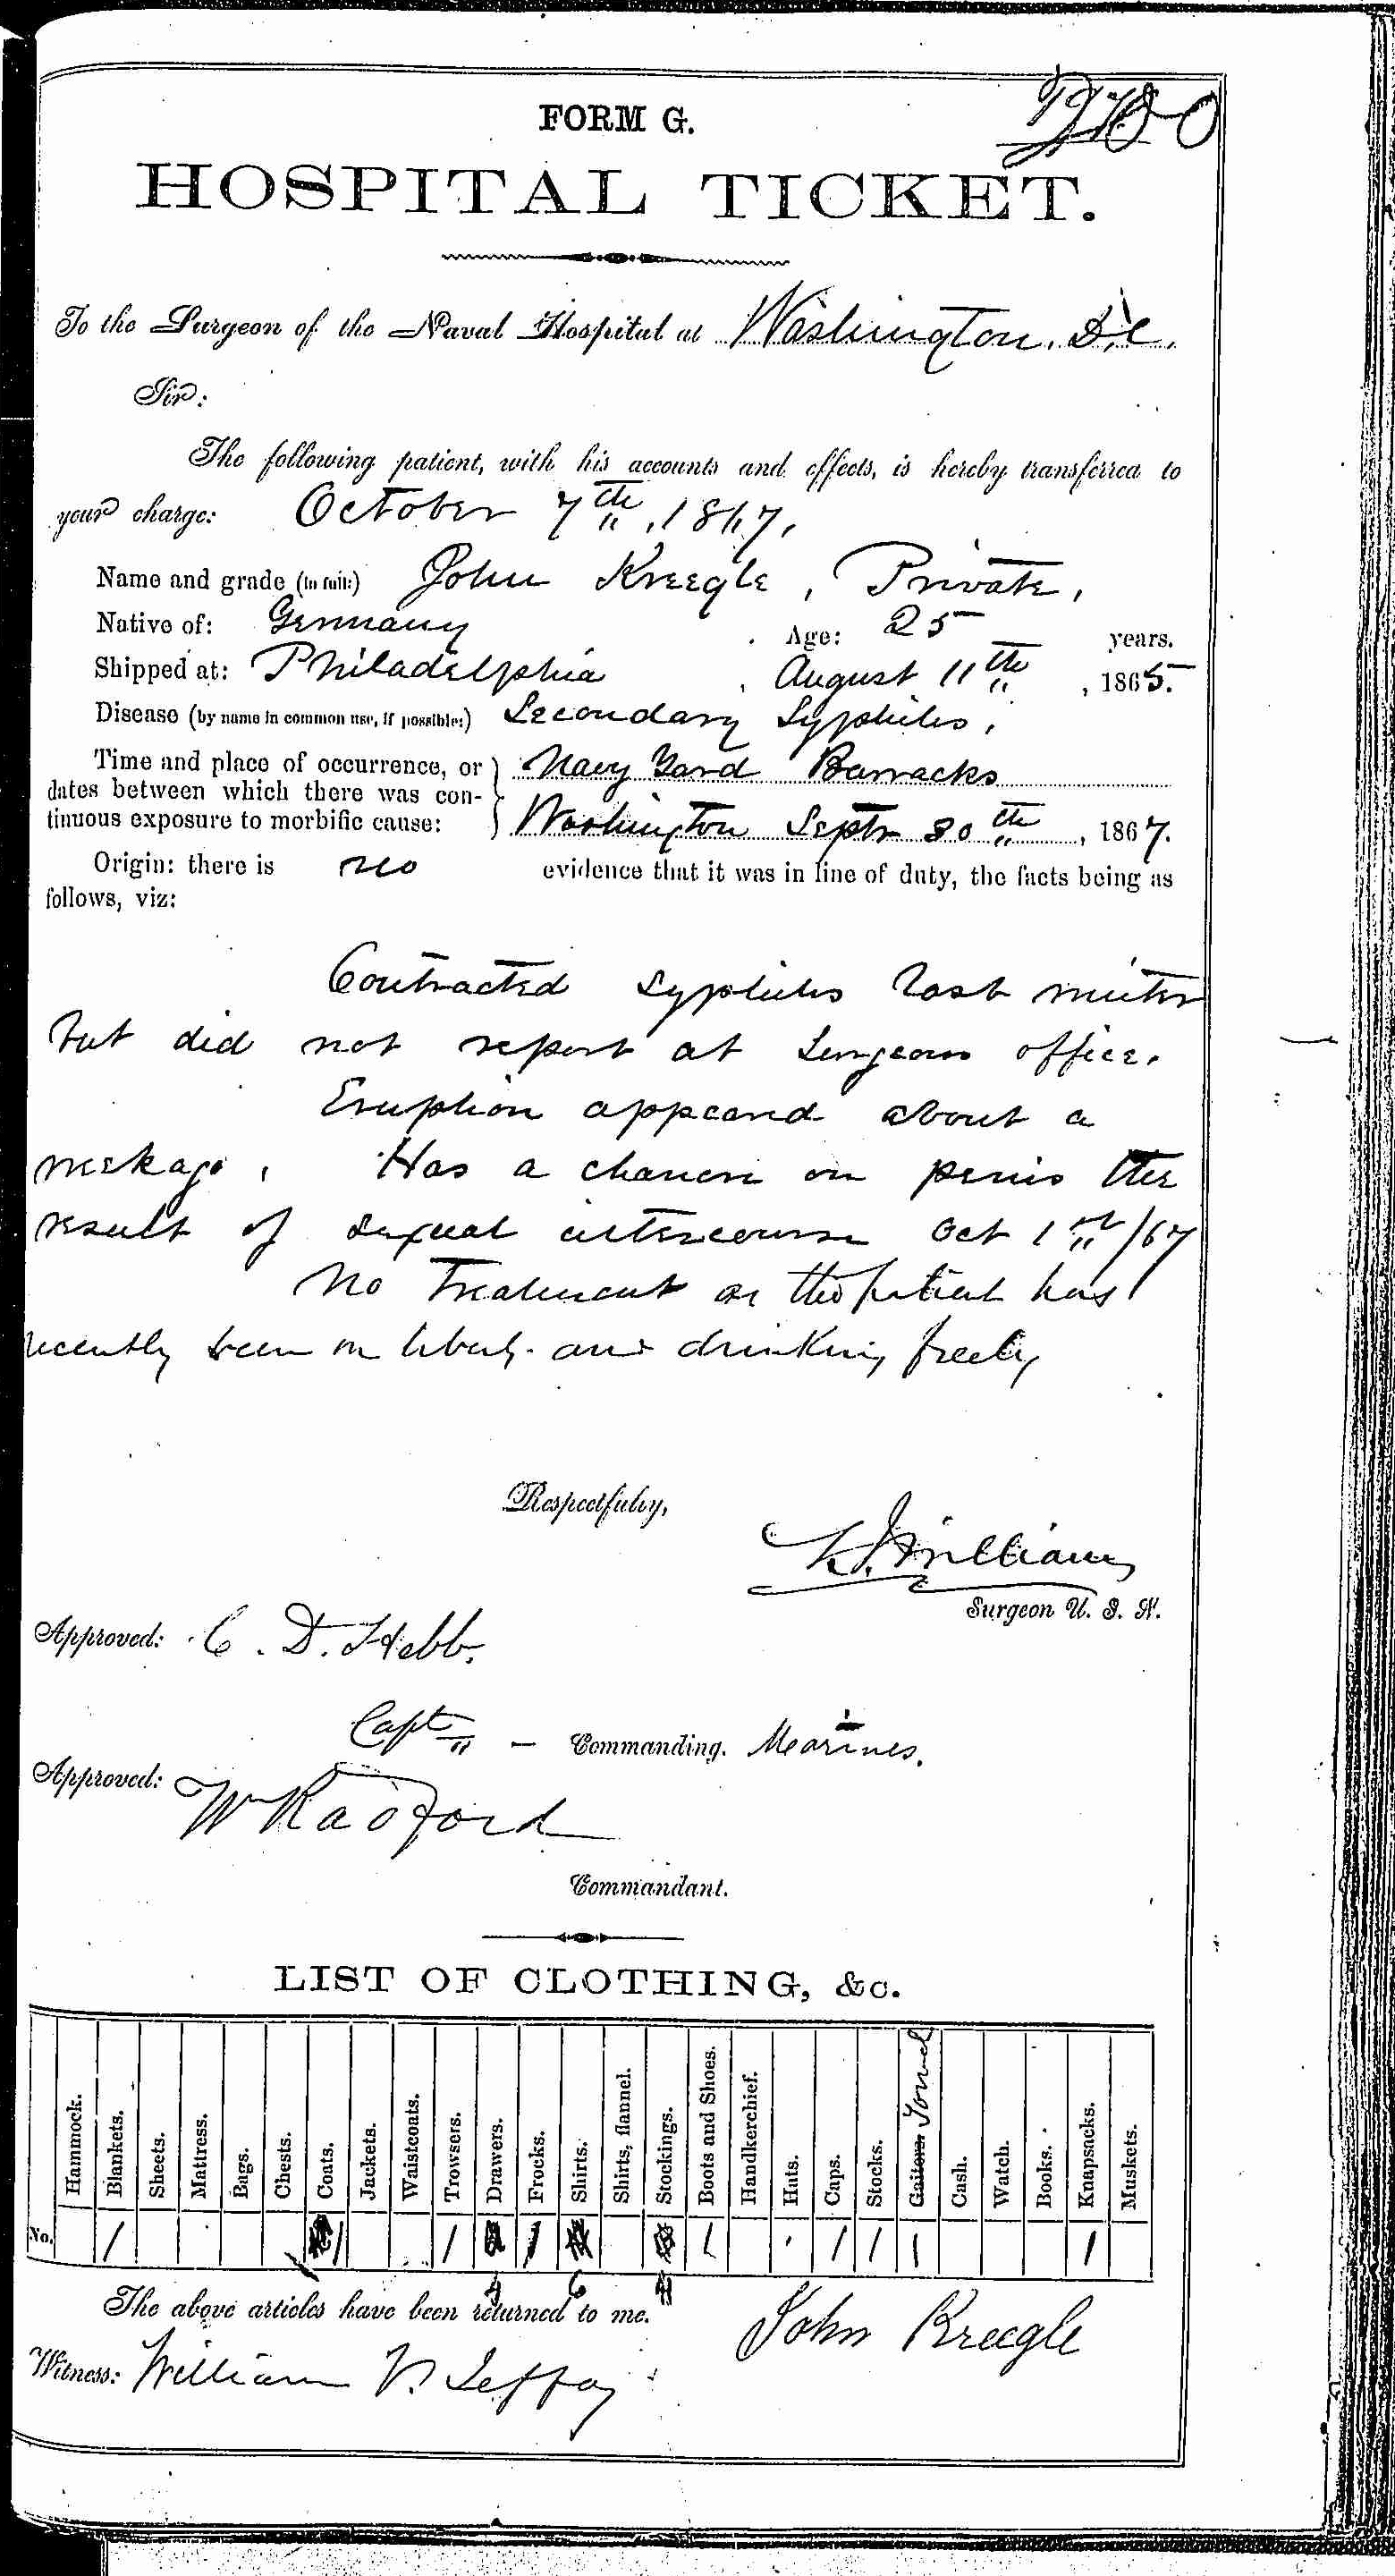 FORM G.
HOSPITAL TICKET.
To the Surgeon of the Naval Hospital at Washington. D.C.
Sir:
The following patient, with his accounts and effects, is hereby transferred to
your charge: October 7th, 1867,
Name and grade (in full:) John Kreegle, Private,
Native of: Germany Age: 25 years.
Shipped at: Philadelphia, August 11th, 1865.
Disease (by name in common use, if possible:) Secondary Syphilis,
Time and place of occurrence, or Navy Yard Barracks
dates between which there was con-
tinuous exposure to morbific cause: Washington Septr 30th, 1867.
Origin: there is no evidence that it was in line of duty, the facts being as
follows, viz:
Contracted Syphilis last winter
but did not report at Surgeons office.
Eruption appeared about a
week ago, Has a chancre on penis the
result of sexual intercourse Oct 1st/67
No Treatment as the patient has
recently been on liberty and drinking freely
Respectfully,
Williams
Surgeon U. S. N.
Approved: C. D. Hebb.
Capt - Commanding. Marines.
Approved: W Radford
Commandant.
LIST OF CLOTHING, &c.
Hammock. Blankets. Sheets. Mattress. Bags. Chests. Coats. Jackets. Waistcoats. Trowsers. Drawers. Frocks. Shirts. Shirts, flannel. Stockings. Boots and Shoes. Handkerchief. Hats. Caps. Stocks. Gaiters. Towel Cash. Watch. Books. Knapsacks. Muskets.
No. 1 1 1 1 1 1 1 1 1
4 6 4
The above articles have been returned to me. John Kreegle
Witness: William V.